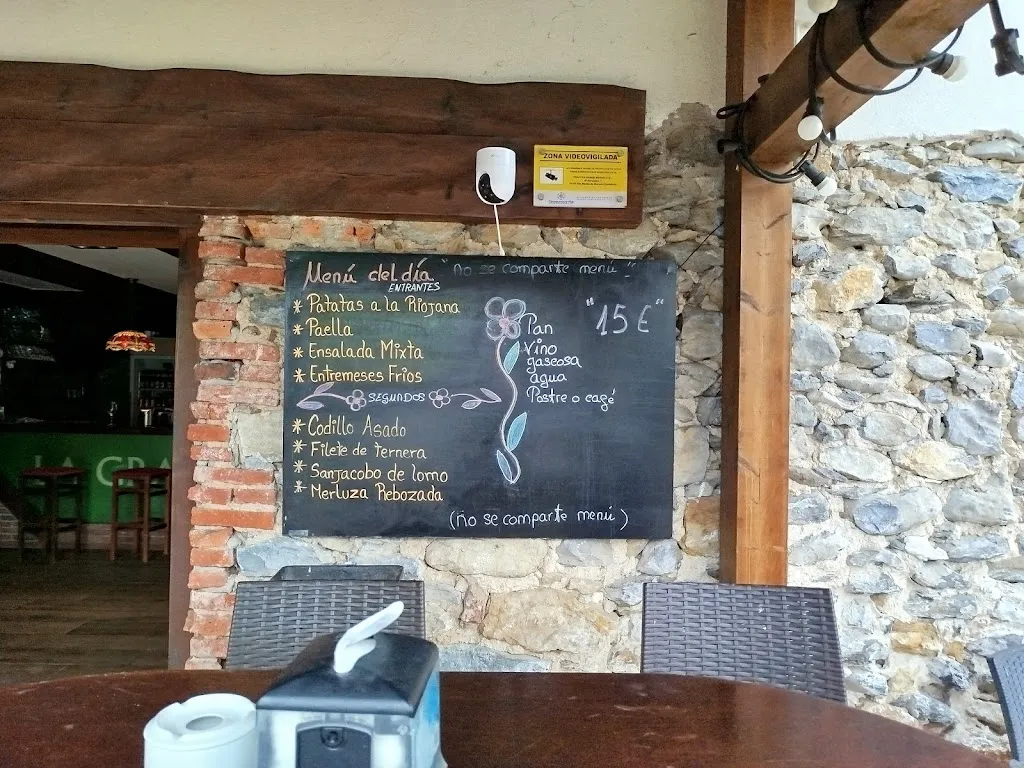 ZONA VIDEOVIGILADA
Menú del día "No se comparte menú"
ENTRANTES
* Patatas a la Riojana
* Paella
* Ensalada Mixta
* Entremeses Frios
SEGUNDOS
* Codillo Asado
* Filete de Ternera
* Sanjacobo de lomo
* Merluza Rebozada
Pan
Vino
gaseosa
agua
Postre o café
"15€"
(no se comparte menú)
LA GRA